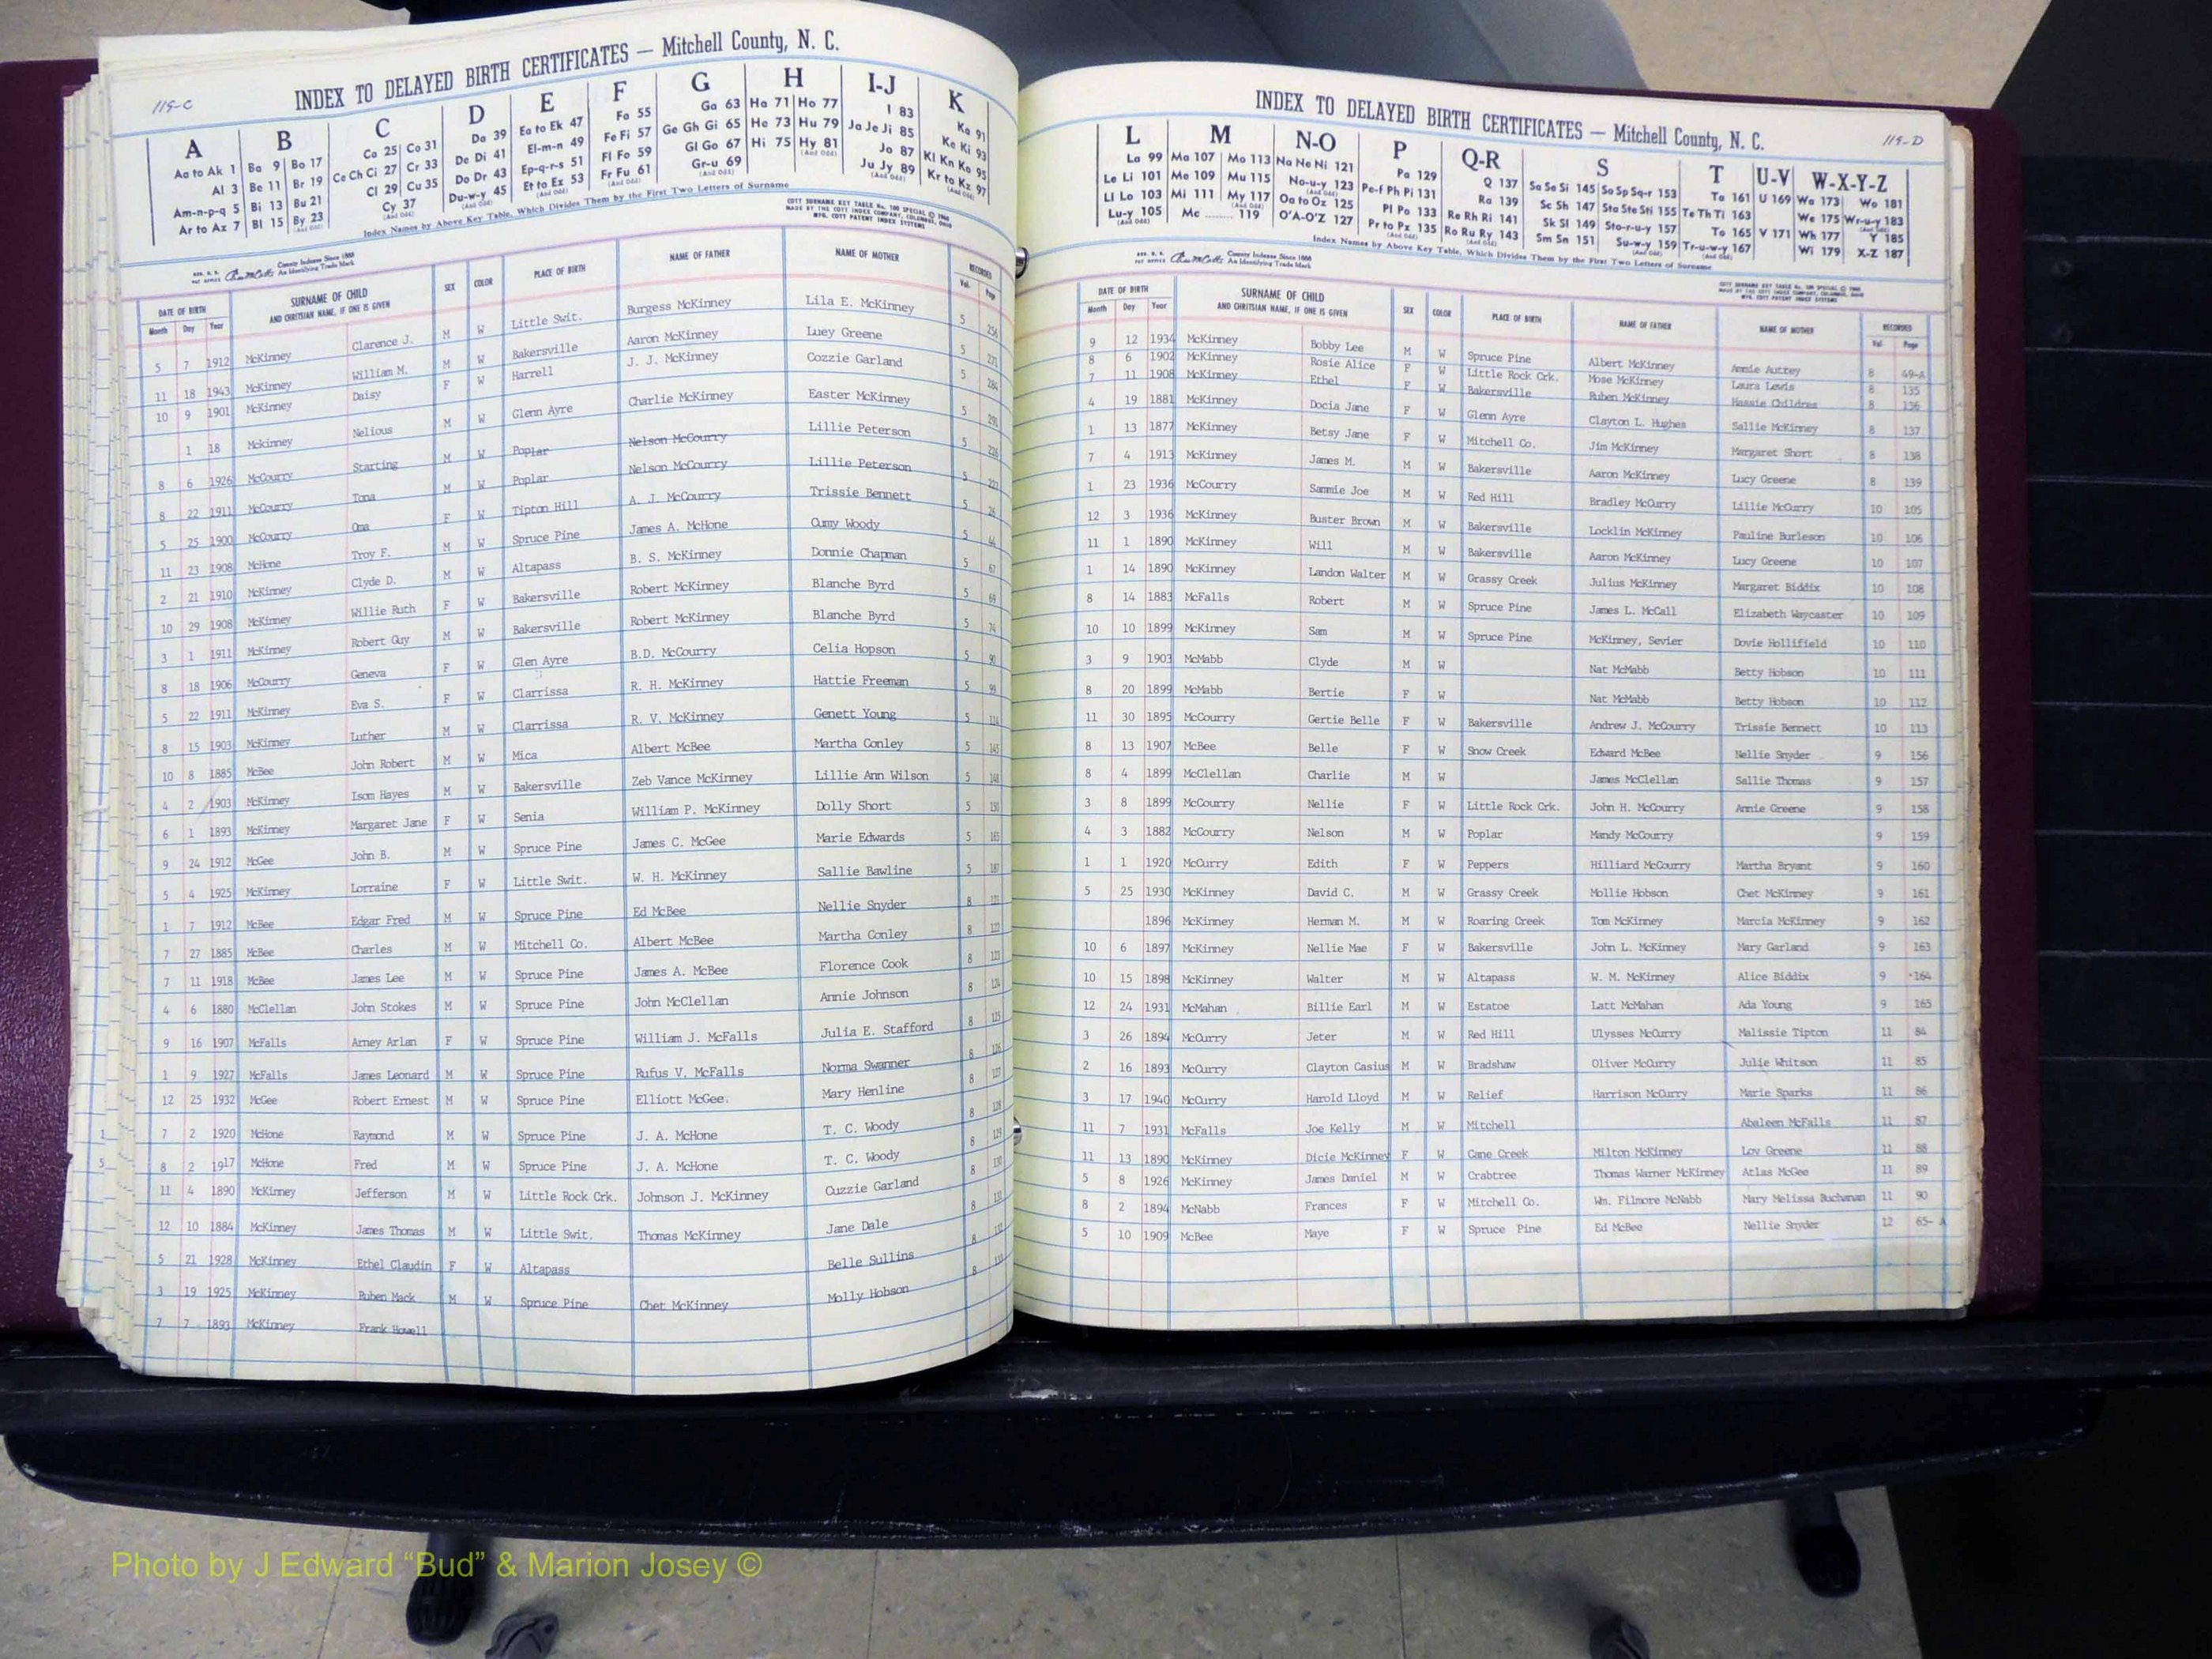 119-C
INDEX TO DELAYED BIRTH CERTIFICATES — Mitchell County, N. C.
A B C D E F G H I-J K
Aa to Ak 1 Ba 9 Bo 17 Ca 25 Co 31 Da 39 Ea to Ek 47 Fa 55 Ga 63 Ha 71 Ho 77 I 83 Ka 91
Al 3 Be 11 Br 19 Ce Ch Ci 27 Cr 33 De Di 41 El-m-n 49 Fe Fi 57 Ge Gh Gi 65 He 73 Hu 79 Ja Je Ji 85 Ke Ki 93
Am-n-p-q 5 Bi 13 Bu 21 Cl 29 Cu 35 Do Dr 43 Ep-q-r-s 51 Fl Fo 59 Gl Go 67 Hi 75 Hy 81 Jo 87 Kl Kn Ko 95
Ar to Az 7 Bl 15 By 23 Cy 37 Du-w-y 45 Et to Ez 53 Fr Fu 61 Gr-u 69 Ju Jy 89 Kr to Kz 97
Index Names by Above Key Table, Which Divides Them by the First Two Letters of Surname
County Indexes Since 1888
An Identifying Trade Mark
DATE OF BIRTH SURNAME OF CHILD AND CHRITSIAN NAME, IF ONE IS GIVEN SEX COLOR PLACE OF BIRTH NAME OF FATHER NAME OF MOTHER RECORDED
Month Day Year Vol. Page
5 7 1912 McKinney Clarence J. M W Little Swit. Burgess McKinney Lila E. McKinney 5 256
11 18 1943 McKinney William M. M W Bakersville Aaron McKinney Luey Greene 5 271
10 9 1901 McKinney Daisy F W Harrell J. J. McKinney Cozzie Garland 5 284
1 18 Mckinney Nelious M W Glenn Ayre Charlie McKinney Easter McKinney 5
8 6 1926 McCourry Starting M W Poplar Nelson McCourry Lillie Peterson 5
8 22 1911 McCourry Tona M W Poplar Nelson McCourry Lillie Peterson 5
5 25 1900 McCourry Oma F W Tipton Hill A. J. McCourry Trissie Bennett 5 26
11 23 1908 McHone Troy F. M W Spruce Pine James A. McHone Cumy Woody 5
2 21 1910 McKinney Clyde D. M W Altapass B. S. McKinney Donnie Chapman 5 67
10 29 1908 McKinney Willie Ruth F W Bakersville Robert McKinney Blanche Byrd 5 69
3 1 1911 McKinney Robert Guy M W Bakersville Robert McKinney Blanche Byrd 5 74
8 18 1906 McCourry Geneva F W Glen Ayre B.D. McCourry Celia Hopson 5 90
5 22 1911 McKinney Eva S. F W Clarrissa R. H. McKinney Hattie Freeman 5
8 15 1903 McKinney Luther M W Clarrissa R. V. McKinney Genett Young 5 114
10 8 1885 McBee John Robert M W Mica Albert McBee Martha Conley 5 145
4 2 1903 McKinney Isom Hayes M W Bakersville Zeb Vance McKinney Lillie Ann Wilson 5 148
6 1 1893 McKinney Margaret Jane F W Senia William P. McKinney Dolly Short 5 150
9 24 1912 McGee John B. M W Spruce Pine James C. McGee Marie Edwards 5 163
5 4 1925 McKinney Lorraine F W Little Swit. W. H. McKinney Sallie Bawline 5
1 7 1912 McBee Edgar Fred M W Spruce Pine Ed McBee Nellie Snyder 8 121
7 27 1885 McBee Charles M W Mitchell Co. Albert McBee Martha Conley 8 122
7 11 1918 McBee James Lee M W Spruce Pine James A. McBee Florence Cook 8 123
4 6 1880 McClellan John Stokes M W Spruce Pine John McClellan Annie Johnson 8 124
9 16 1907 McFalls Arney Arlan F W Spruce Pine William J. McFalls Julia E. Stafford 8 125
1 9 1927 McFalls James Leonard M W Spruce Pine Rufus V. McFalls Norma Swanner 8 126
12 25 1932 McGee Robert Ernest M W Spruce Pine Elliott McGee. Mary Henline 8 127
7 2 1920 McHone Raymond M W Spruce Pine J. A. McHone T. C. Woody 8 128
8 2 1917 McHone Fred M W Spruce Pine J. A. McHone T. C. Woody 8 129
11 4 1890 McKinney Jefferson M W Little Rock Crk. Johnson J. McKinney Cuzzie Garland 8 130
12 10 1884 McKinney James Thomas M W Little Swit. Thomas McKinney Jane Dale 8 131
5 21 1928 McKinney Ethel Claudin F W Altapass Belle Sullins 8 132
3 19 1925 McKinney Ruben Mack M W Spruce Pine Chet McKinney Molly Hobson 8 133
7 7 1893 McKinney Frank Howell
119-D
INDEX TO DELAYED BIRTH CERTIFICATES — Mitchell County, N. C.
L M N-O P Q-R S T U-V W-X-Y-Z
La 99 Ma 107 Mo 113 Na Ne Ni 121 Pa 129 Q 137 Sa Se Si 145 So Sp Sq-r 153 Ta 161 U 169 Wa 173 Wo 181
Le Li 101 Me 109 Mu 115 No-u-y 123 Pe-f Ph Pi 131 Ra 139 Sc Sh 147 Sta Ste Sti 155 Te Th Ti 163 We 175 Wr-u-y 183
Ll Lo 103 Mi 111 My 117 Oa to Oz 125 Pl Po 133 Re Rh Ri 141 Sk Sl 149 Sto-r-u-y 157 To 165 V 171 Wh 177 Y 185
Lu-y 105 Mc 119 O'A-O'Z 127 Pr to Px 135 Ro Ru Ry 143 Sm Sn 151 Su-w-y 159 Tr-u-w-y 167 Wi 179 X-Z 187
Index Names by Above Key Table, Which Divides Them by the First Two Letters of Surname
County Indexes Since 1888
An Identifying Trade Mark
DATE OF BIRTH SURNAME OF CHILD AND CHRITSIAN NAME, IF ONE IS GIVEN SEX COLOR PLACE OF BIRTH NAME OF FATHER NAME OF MOTHER RECORDED
Month Day Year Vol. Page
9 12 1934 McKinney Bobby Lee M W Spruce Pine Albert McKinney Annie Auttey 8 49-A
8 6 1902 McKinney Rosie Alice F W Little Rock Crk. Mose McKinney Laura Lewis 8 135
7 11 1908 McKinney Ethel F W Bakersville Ruben McKinney Hassie Childres 8 136
4 19 1881 McKinney Docia Jane F W Glenn Ayre Clayton L. Hughes Sallie McKinney 8 137
1 13 1877 McKinney Betsy Jane F W Mitchell Co. Jim McKinney Margaret Short 8 138
7 4 1913 McKinney James M. M W Bakersville Aaron McKinney Lucy Greene 8 139
1 23 1936 McCourry Sammie Joe M W Red Hill Bradley McCurry Lillie McCurry 10 105
12 3 1936 McKinney Buster Brown M W Bakersville Locklin McKinney Pauline Burleson 10 106
11 1 1890 McKinney Will M W Bakersville Aaron McKinney Lucy Greene 10 107
1 14 1890 McKinney Landon Walter M W Grassy Creek Julius McKinney Margaret Biddix 10 108
8 14 1883 McFalls Robert M W Spruce Pine James L. McCall Elizabeth Waycaster 10 109
10 10 1899 McKinney Sam M W Spruce Pine McKinney, Sevier Dovie Hollifield 10 110
3 9 1903 McMabb Clyde M W Nat McMabb Betty Hobson 10 111
8 20 1899 McMabb Bertie F W Nat McMabb Betty Hobson 10 112
11 30 1895 McCourry Gertie Belle F W Bakersville Andrew J. McCourry Trissie Bennett 10 113
8 13 1907 McBee Belle F W Snow Creek Edward McBee Nellie Snyder 9 156
8 4 1899 McClellan Charlie M W James McClellan Sallie Thomas 9 157
3 8 1899 McCourry Nellie F W Little Rock Crk. John H. McCourry Annie Greene 9 158
4 3 1882 McCourry Nelson M W Poplar Mandy McCourry 9 159
1 1 1920 McCurry Edith F W Peppers Hilliard McCourry Martha Bryant 9 160
5 25 1930 McKinney David C. M W Grassy Creek Mollie Hobson Chet McKinney 9 161
1896 McKinney Herman M. M W Roaring Creek Tom McKinney Marcia McKinney 9 162
10 6 1897 McKinney Nellie Mae F W Bakersville John L. McKinney Mary Garland 9 163
10 15 1898 McKinney Walter M W Altapass W. M. McKinney Alice Biddix 9 164
12 24 1931 McMahan Billie Earl M W Estatoe Latt McMahan Ada Young 9 165
3 26 1894 McCurry Jeter M W Red Hill Ulysses McCurry Malissie Tipton 11 84
2 16 1893 McCurry Clayton Casius M W Bradshaw Oliver McCurry Julie Whitson 11 85
3 17 1940 McCurry Harold Lloyd M W Relief Harrison McCurry Marie Sparks 11 86
11 7 1931 McFalls Joe Kelly M W Mitchell Abaleen McFalls 11 87
11 13 1890 McKinney Dicie McKinney F W Cane Creek Milton McKinney Lov Greene 11 88
5 8 1926 McKinney James Daniel M W Crabtree Thomas Warner McKinney Atlas McGee 11 89
8 2 1894 McNabb Frances F W Mitchell Co. Wm. Filmore McNabb Mary Melissa Buchanan 11 90
5 10 1909 McBee Maye F W Spruce Pine Ed McBee Nellie Snyder 12 65-A
Photo by J Edward “Bud” & Marion Josey ©